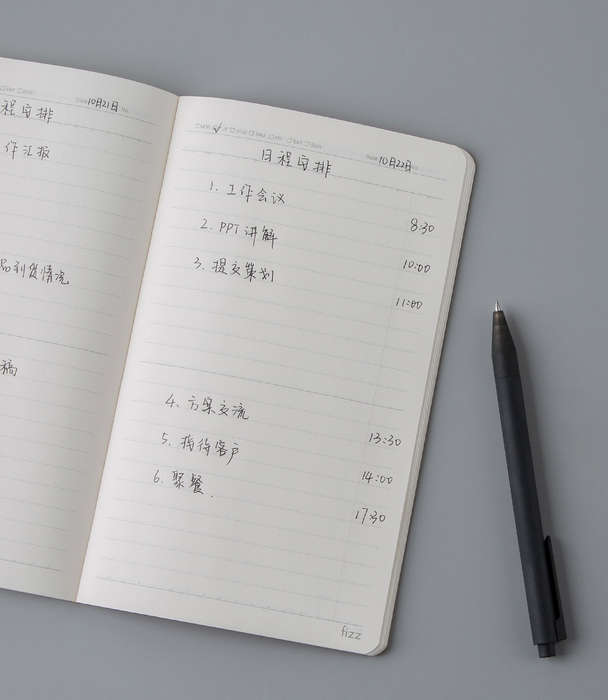 10月21日
程安排
作汇报
品到货情况
稿
10月22日
日程安排
1. 工作会议 8:30
2. PPT 讲解 10:00
3. 提交策划 11:00
4. 方案交流 13:30
5. 接待客户 14:00
6. 聚餐. 17:30
fizz